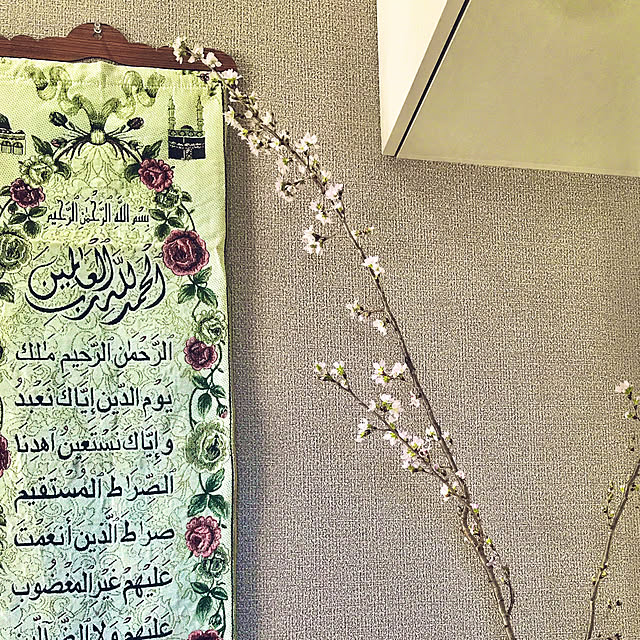 بسم الله الرحمن الرحيم
الحمد لله رب العالمين
الرحمن الرحيم ملك
يوم الدين إياك نعبد
وإياك نستعين اهدنا
الصراط المستقيم
صراط الذين أنعمت
عليهم غير المغضوب
عليهم ولا الضالين